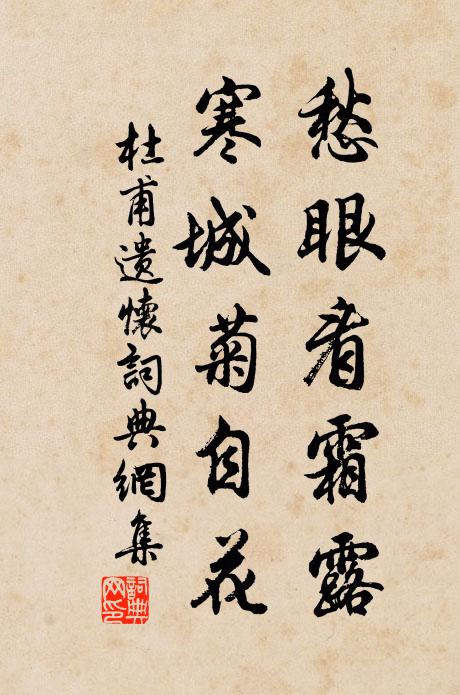 愁眼看霜露
寒城菊自花
杜甫遣懷詞典網集
詞典網印